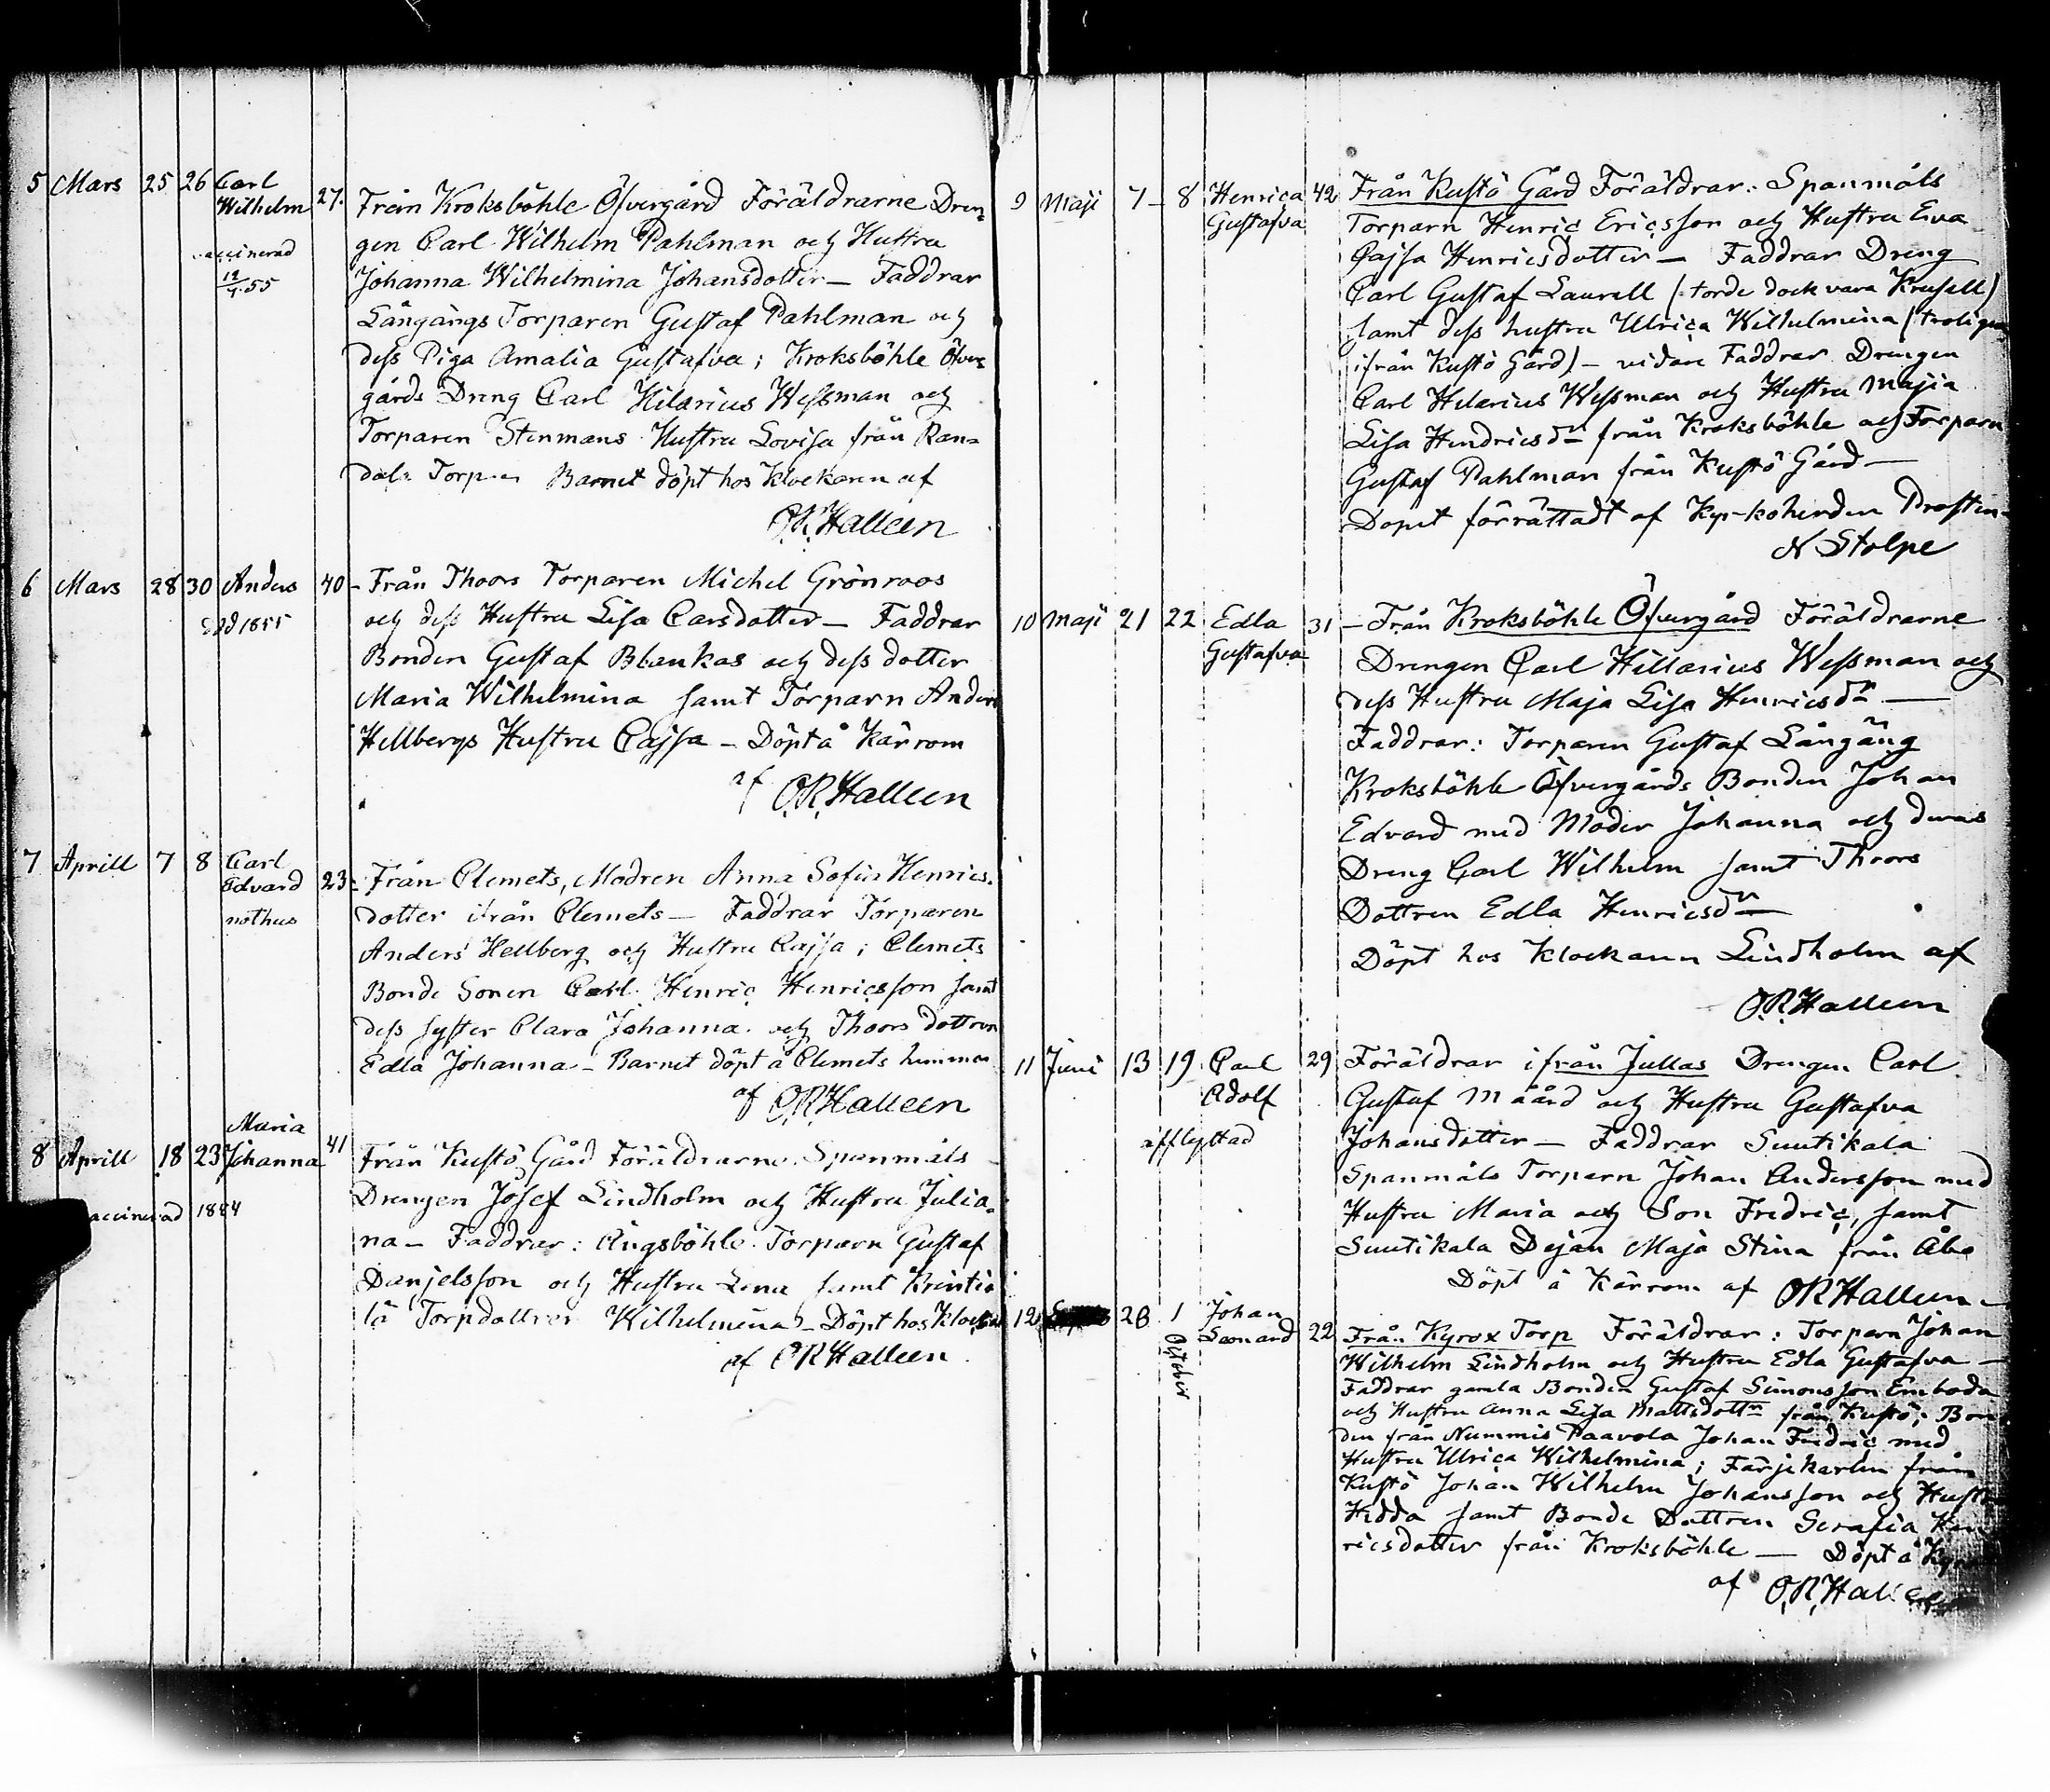 5 Mars 25 26 Carl
Wilhelm 27. Från Kroksböhle Öfvergård Föräldrarne Dren=
gen Carl Wilhelm Pahlman och Hustru
vaccinerad
12/4 55
Johanna Wilhelmina Johansdotter — Faddrar
Långångs Torparen Gustaf Pahlman och
dess Piga Amalia Gustafva; Kroksböhle Öfver=
gårds Dreng Carl Hilarius Wessman och
Torparen Stenmans Hustru Lovisa från Ran=
dals Torpen Barnet döpt hos Klockaren af
O.R. Halleen
6 Mars 28 30 Anders 40 – Från Thoors Torparen Michel Grönroos
död 1855
och dess Hustru Lisa Carsdotter — Faddrar
Bonden Gustaf Blankas och dess dotter
Maria Wilhelmina samt Torparn Anders
Hellbergs Hustru Cajsa – Döpt å Kärrom
af O.R. Halleen
7 Aprill 7 8 Carl
Edvard 23 = Från Clemets, Modren Anna Sofia Henrics=
nothus
dotter ifrån Clemets — Faddrar Torparen
Anders Hellberg och Hustru Cajsa; Clemets
Bonde Sonen Carl Henric Henricsson samt
dess syster Clara Johanna och Thoors dottren
Edla Johanna – Barnet döpt å Clemets hemman
af O.R. Halleen
Maria
8 Aprill 18 23 Johanna 41 Från Kustö Gård Föräldrarne Spanmåls
Drengen Josef Lindholm och Hustru Julia=
vaccinerad 1884
na – Faddrar: Ängsböhle Torparn Gustaf
Danjelsson och Hustru Lena samt
lä Torpdottren Wilhelmina – Döpt hos Klockarn
af O R Halleen
9 Maji 7 – 8 Henrica 42 Från Kustö Gård Föräldrar: Spanmåls
Gustafva
Torparn Henric Ericsson och Hustru Eva
Cajsa Henricsdotter — Faddrar Dreng
Carl Gustaf Laurell (torde dock vara Krusell)
samt dess hustru Ulrica Wilhelmina (troligen
ifrån Kustö Gård) – vidare Faddrar Drengen
Carl Hilarius Wessman och Hustru Majia
Lisa Hendricsdr från Kroksböhle och Torparn
Gustaf Pahlman från Kustö Gård —
Dopet förrättadt af Kyrkoherden Prosten
N Stolpe
10 Maji 21 22 Edla 31 – Från Kroksböhle Öfvergård Föräldrarne
Gustafva
Drengen Carl Hillarius Wessman och
dess Hustru Maja Lisa Henricsdr —
Faddrar: Torparen Gustaf Långång
Kroksböhle Öfvergårds Bonden Johan
Edvard med Moder Johanna och deras
Dreng Carl Wilhelm samt Thoors
Dottren Edla Henricsdr —
Döpt hos Klockaren Lindholm af
O.R. Halleen
11 Juni 13 19 Carl 29 Föräldrar ifrån Jullas Drengen Carl
Adolf
Gustaf Måård och Hustru Gustafva
afflyttad
Johansdotter — Faddrar Suutikala
Spanmåls Torparn Johan Andersson med
Hustru Maria och Son Fredric, samt
Suutikala Dejan Maja Stina från Åbo
Döpt å Kärrom af O R Halleen
12 28 1 October Johan
Leonard 22 Från Kyrox Torp Föräldrar: Torparn Johan
Wilhelm Lindholm och Hustru Edla Gustafva —
Faddrar gamla Bonden Gustaf Simonsson Emboda
och Hustru Anna Lisa Mattsdottr från Kustö; Bon
den från Nummis Paavola Johan Fredric med
Hustru Ulrica Wilhelmina; Färjekarlen från
Kustö Johan Wilhelm Johansson och Hustru
Hedda samt Bonde Dottren Serafia Hen
ricsdotter från Kroksböhle — Döpt å
af O.R. Halleen